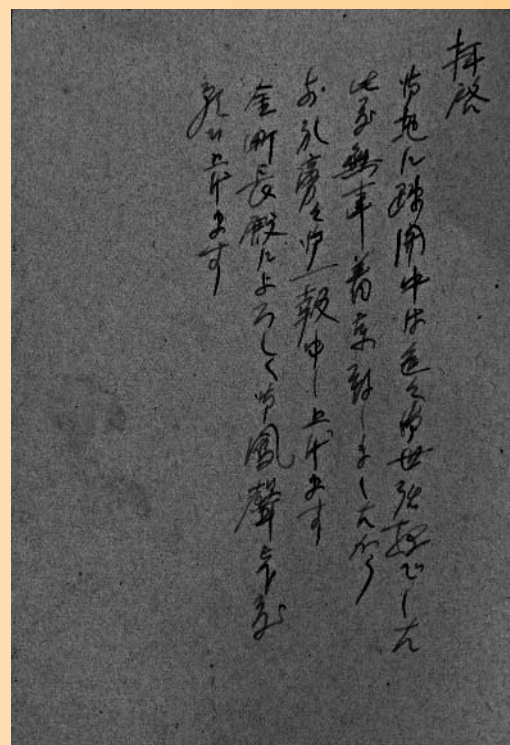 拝啓
御地に疎開中は色々御世話様でした
此度無事着京致しましたから
お礼旁々御一報申し上げます
金町長殿によろしく御鳳聲下度
願い上げます